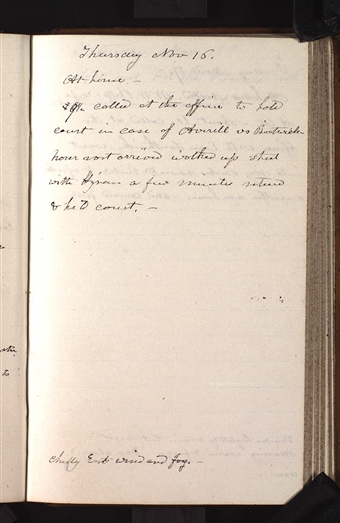 Thursday Nov 16.
At home -
called at the office to hold
court in case of Averill vs
hour not arrived walked up street
with Hiram a few minutes return
& held court. -
to
Chilly East wind and fog. -